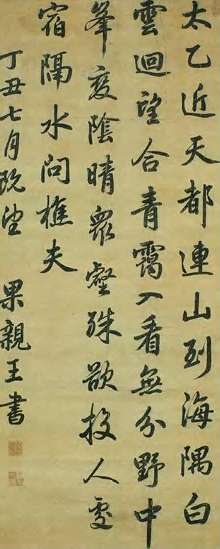 太乙近天都連山到海隅白
雲迴望合青靄入看無分野中
峯變陰晴眾壑殊欲投人處
宿隔水問樵夫
丁丑七月既望 果親王書